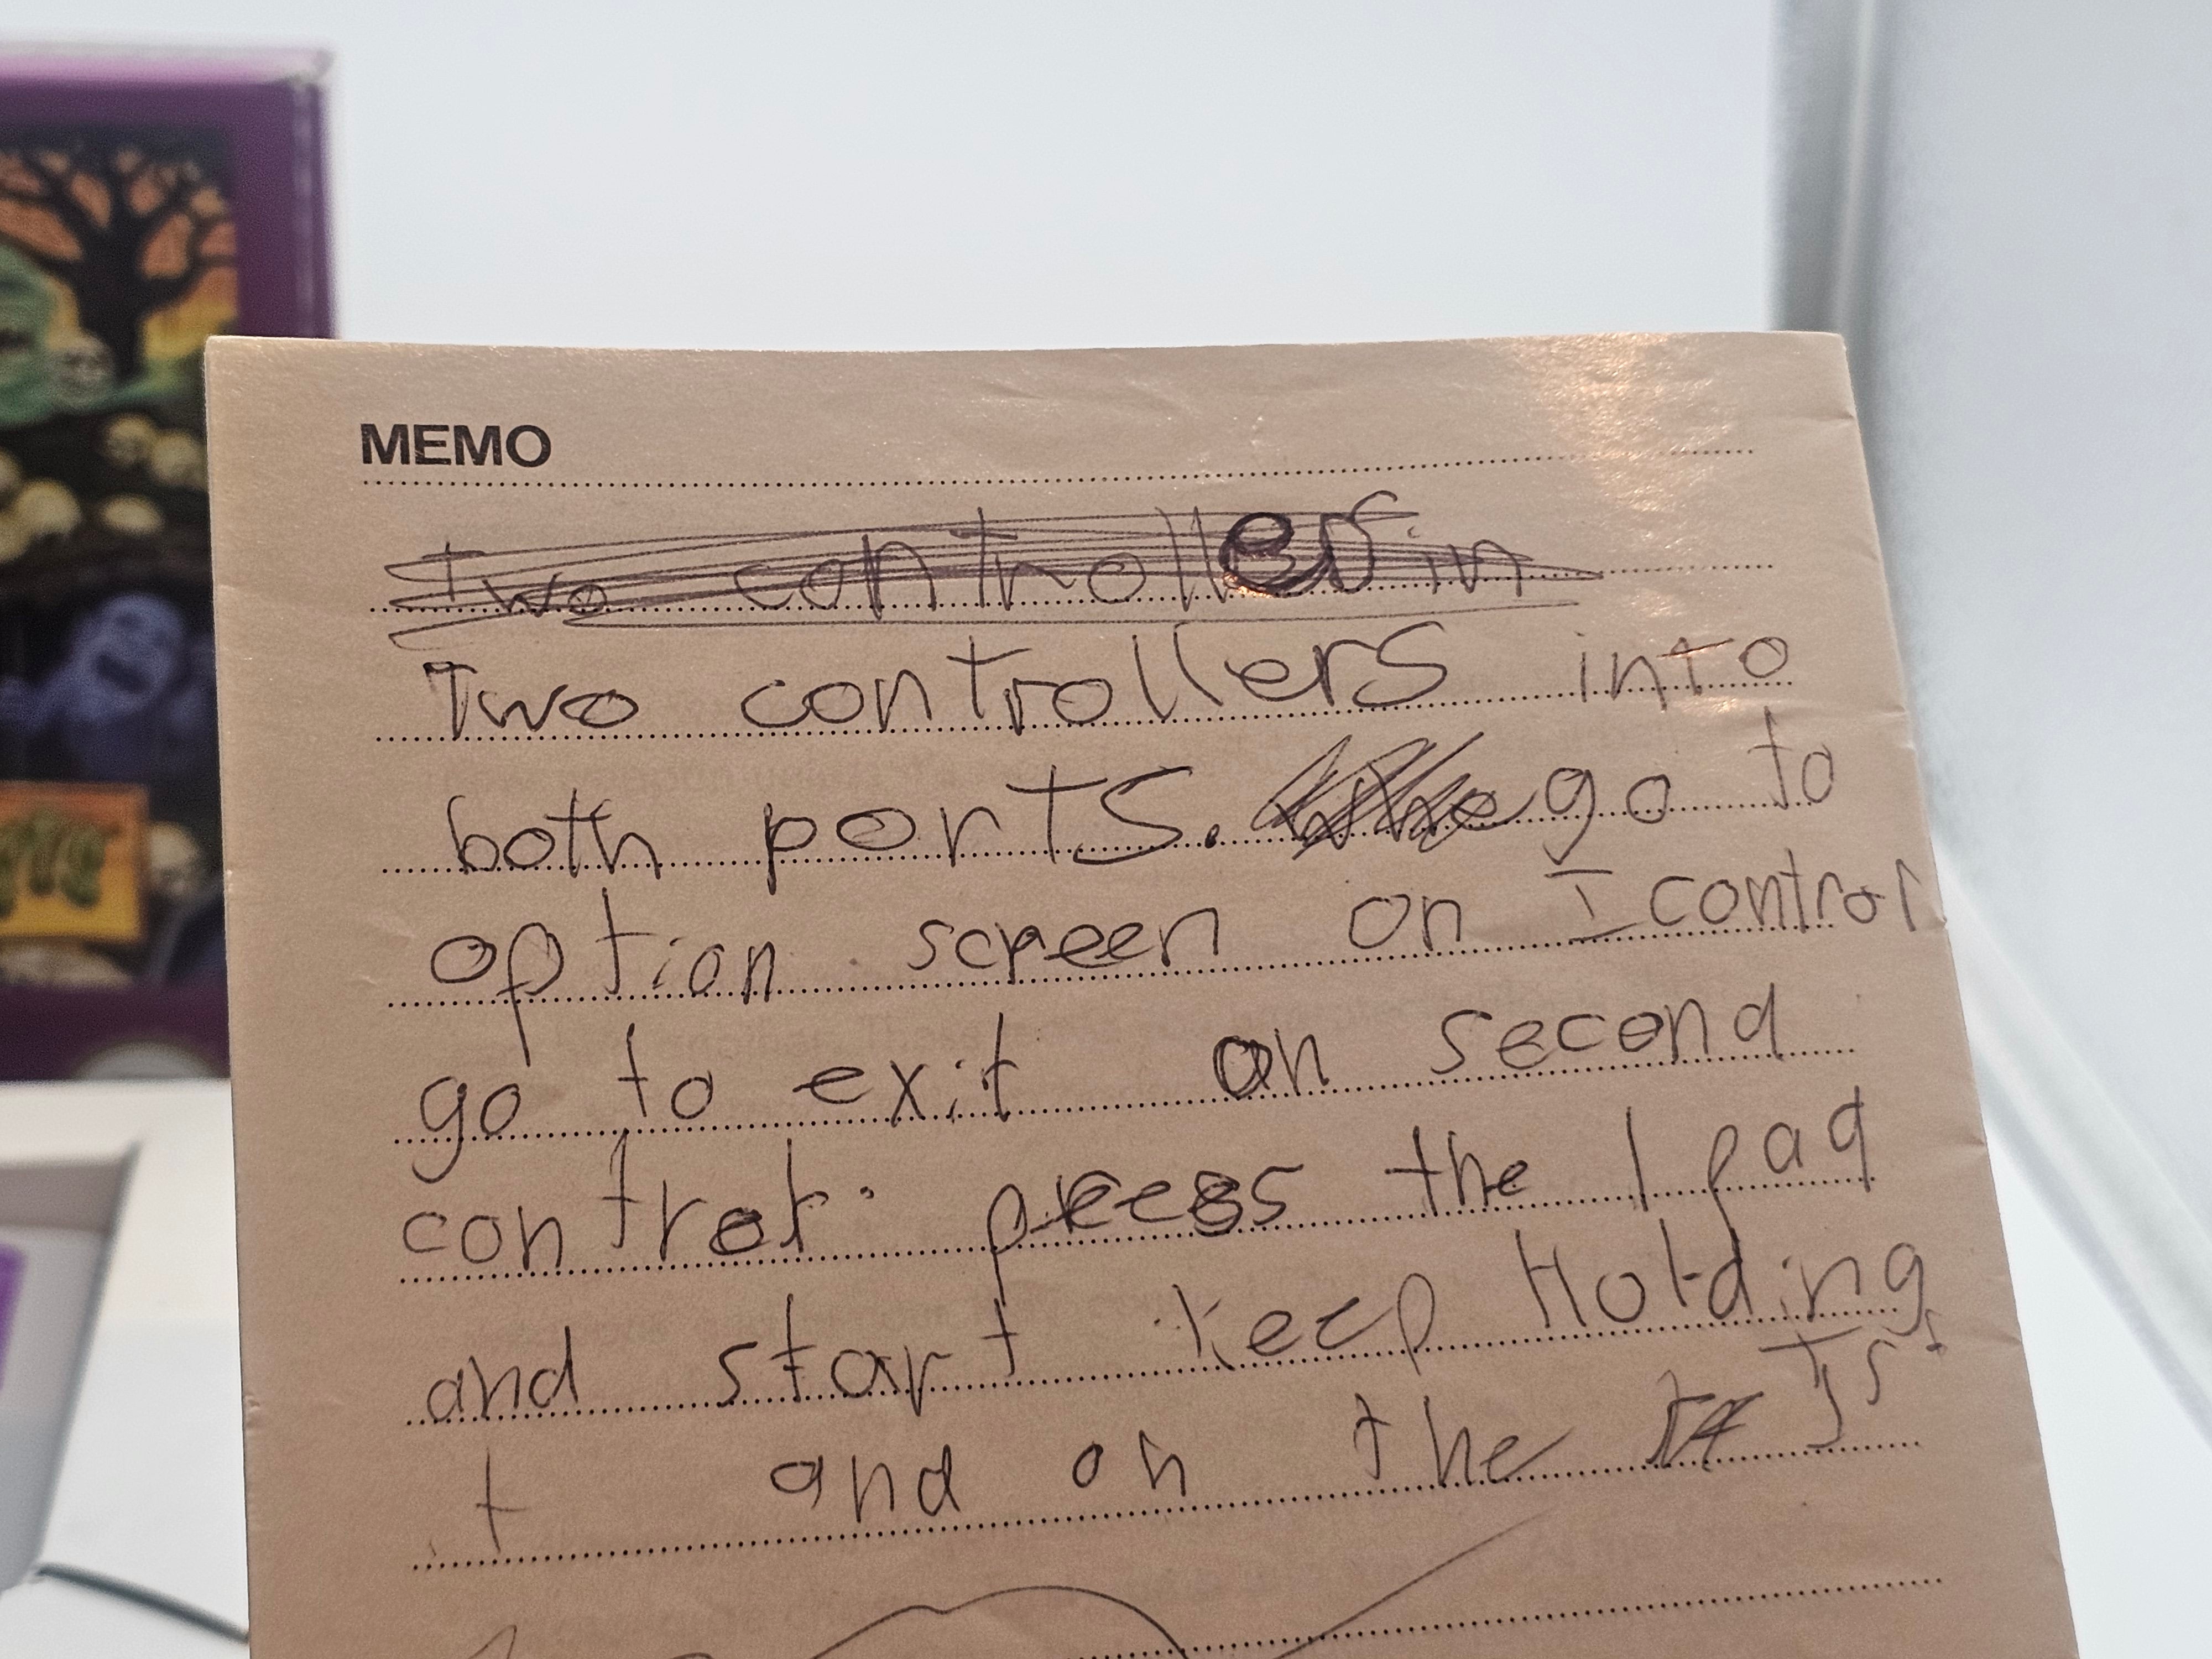 MEMO
Two controllers in
Two controllers into
both ports. go to
option screen on I control
go to exit on second
control. press the l pad
and start keep Holding
it and on the 1st